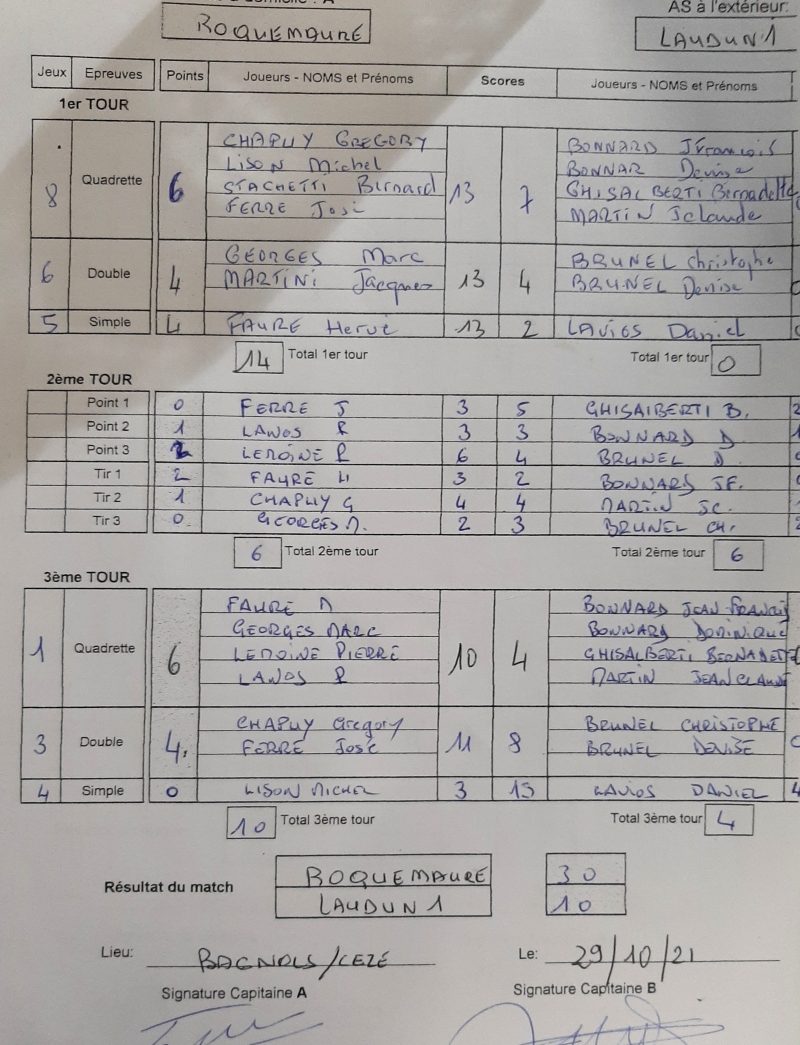 : A AS à l'extérieur:
ROQUEMAURE LAUDUN 1
Jeux Epreuves Points Joueurs - NOMS et Prénoms Scores Joueurs - NOMS et Prénoms
1er TOUR
8 Quadrette 6 13 7
CHAPUY GREGORY BONNARD JFrancois
LISON Michel BONNAR Denise
STACHETTI Bernard GHISALBERTI Bernadette
FERRE José MARTIN JClaude
6 Double 4 13 4
GEORGES Marc BRUNEL Christophe
MARTINI Jacques BRUNEL Denise
5 Simple 4 FAURE Hervé 13 2 LAVIOS Daniel
14 Total 1er tour Total 1er tour 0
2ème TOUR
Point 1 0 FERRE J 3 5 GHISALBERTI B. 2
Point 2 1 LANOS R 3 3 BONNARD D 1
Point 3 2 LEMOINE P 6 4 BRUNEL D 0
Tir 1 2 FAURE H 3 2 BONNARD JF. 0
Tir 2 1 CHAPUY G 4 4 MARTIN JC. 1
Tir 3 0 GEORGES M. 2 3 BRUNEL CH. 2
6 Total 2ème tour Total 2ème tour 6
3ème TOUR
1 Quadrette 6 10 4
FAURE BONNARD JEAN FRANCOIS
GEORGES MARC BONNARD DOMINIQUE
LEMOINE PIERRE GHISALBERTI BERNADETTE
LANOS R MARTIN JEAN CLAUDE
3 Double 4. 11 8 0
CHAPUY Gregory BRUNEL CHRISTOPHE
FERRE José BRUNEL DENISE
4 Simple 0 LISON MICHEL 3 13 LAVIOS DANIEL 4
10 Total 3ème tour Total 3ème tour 4
Résultat du match ROQUEMAURE 30
LAUDUN 1 10
Lieu: BAGNOLS/CEZE Le: 29/10/21
Signature Capitaine A Signature Capitaine B